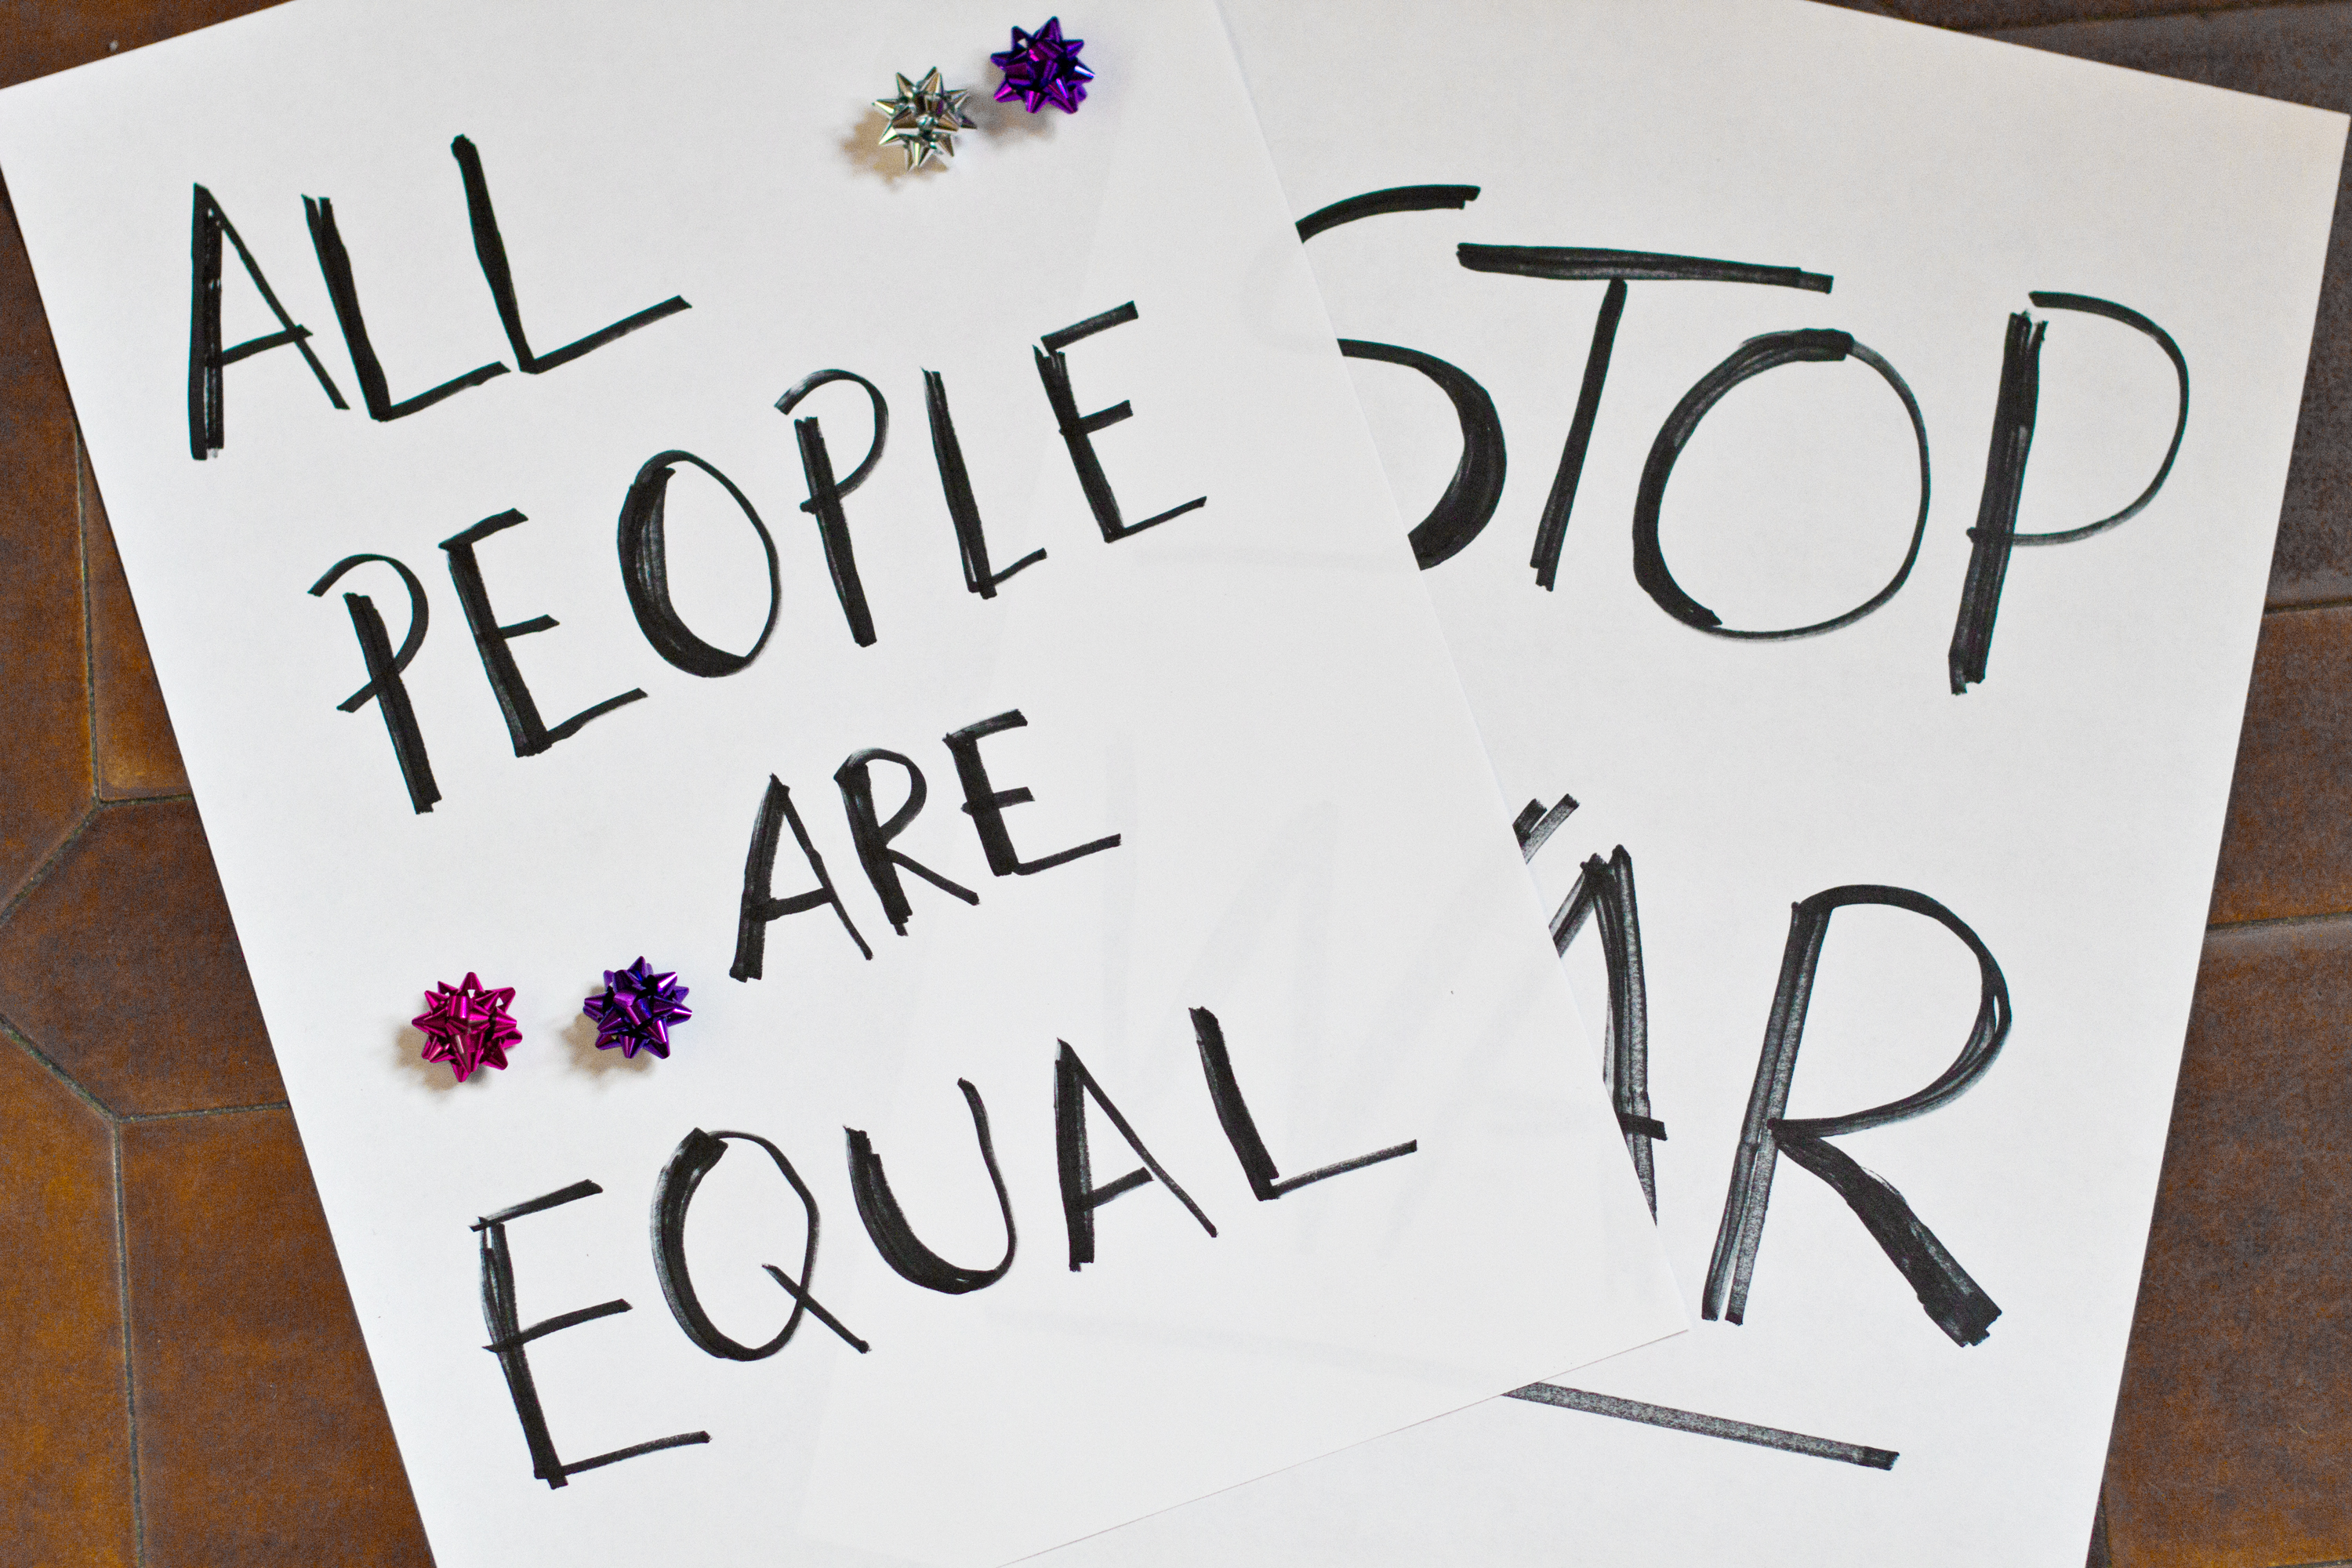 ALL
PEOPLE
ARE
EQUAL
STOP